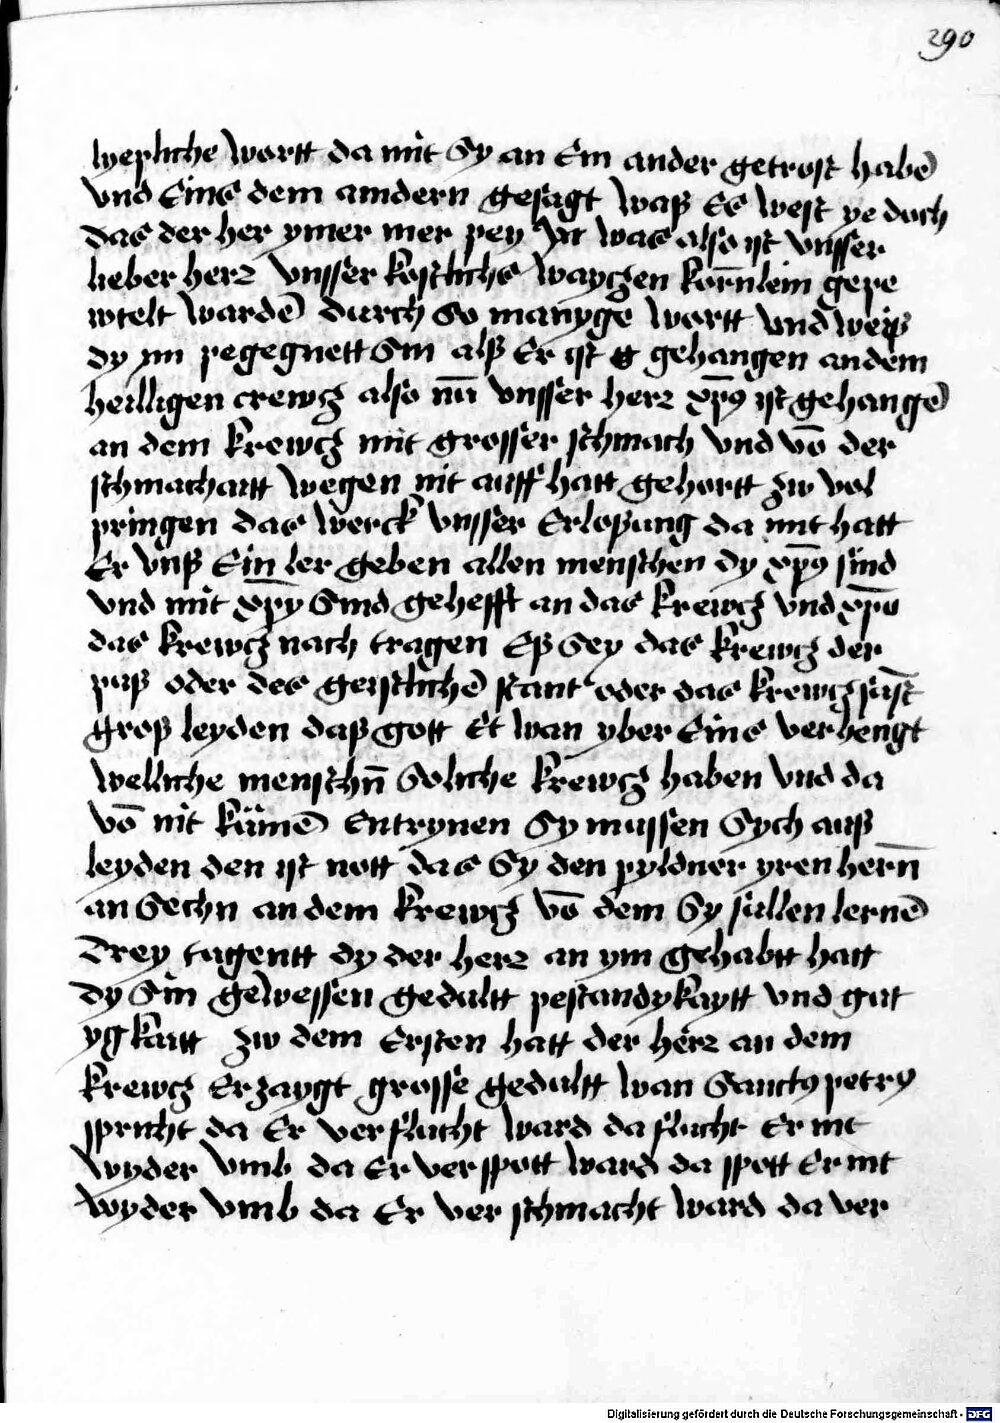 290
lyepliche wortt da mit Sy an Ein ander getrost habē
vnd Eins dem anndern gesagt waß Es West ye doch
das der her ymer mer pey was also ist vnsser
lieber herr vnsser kostlichs wayczen körnlein gepe
wtelt wardē durch So manyge wortt vnd weiß
dy im pegegnett Sin alß Er ist gehangen an dem
heilligen crewcz also nū vnsser herr xp̄9 ist gehangē
an dem krewcz mit grosser schmach vnd vō der
schmachaitt wegen nit auff hatt gehortt zw vol
pringen das werck vnsser Erloßung da mit hatt
Er vnß Ein ler geben allen menschen dy xp̄9 sind
vnd mit xp̄o Sind gehefft an das krewcz vnd xp̄o
das krewcz nach tragen Eß Sey das krewcz der
puß oder des geistlichē stant oder das krewcz sust
groß leyden daß gott Et wan yber Eins verhengt
welliche menschn̄ Soliche krewcz haben vnd da
vō nit kümē Entrynen Sy mussen Sych auß
leyden den ist nott das Sy den pyldner yren hern̄
an Sechn an dem krewcz vō dem Sy sullen lernē
Drey tugentt dy der herr an ym gehabtt hatt
dy Sin gewessen gedultt pestandykaytt vnd gut
ygkaitt zw dem Ersten hatt der herr an dem
krewcz Erzaygt grosse gedultt wan Sanct9 petry
spricht da Er verflucht ward da flucht Er nit
wyder vmb da Er verspott ward da spott Er nit
wyder vmb da Er ver schmacht ward da ver
Digitalisierung gefördert durch die Deutsche Forschungsgemeinschaft - DFG